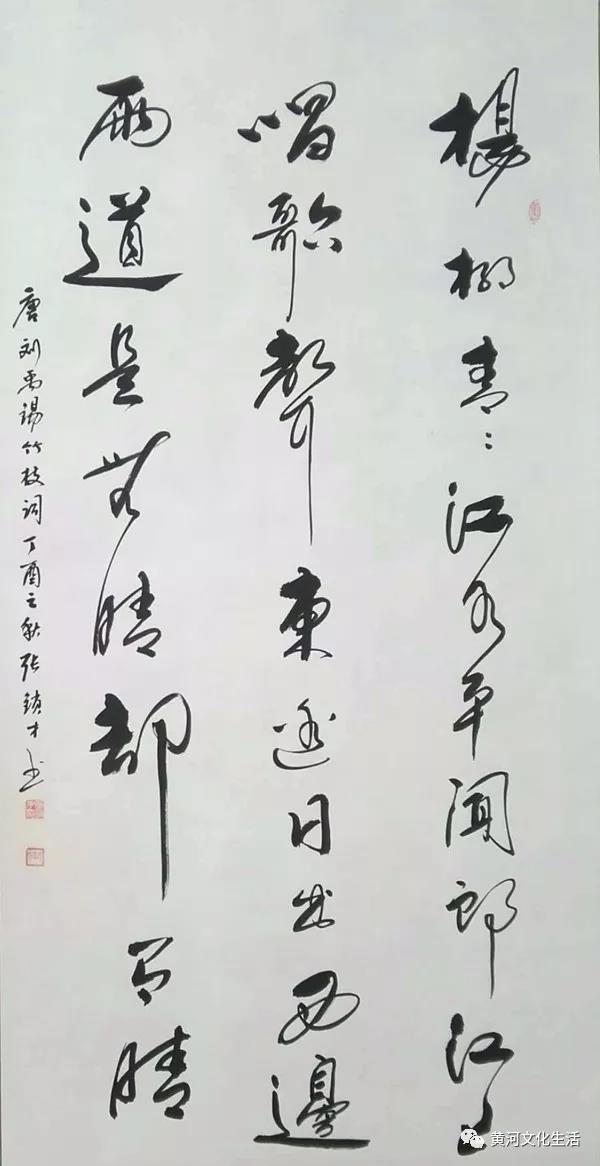 楊柳青々江水平闻郎江上
唱歌聲東邊日出西邊
雨道是無晴却有晴
唐刘禹锡竹枝词丁酉之秋张鎖才书
黄河文化生活